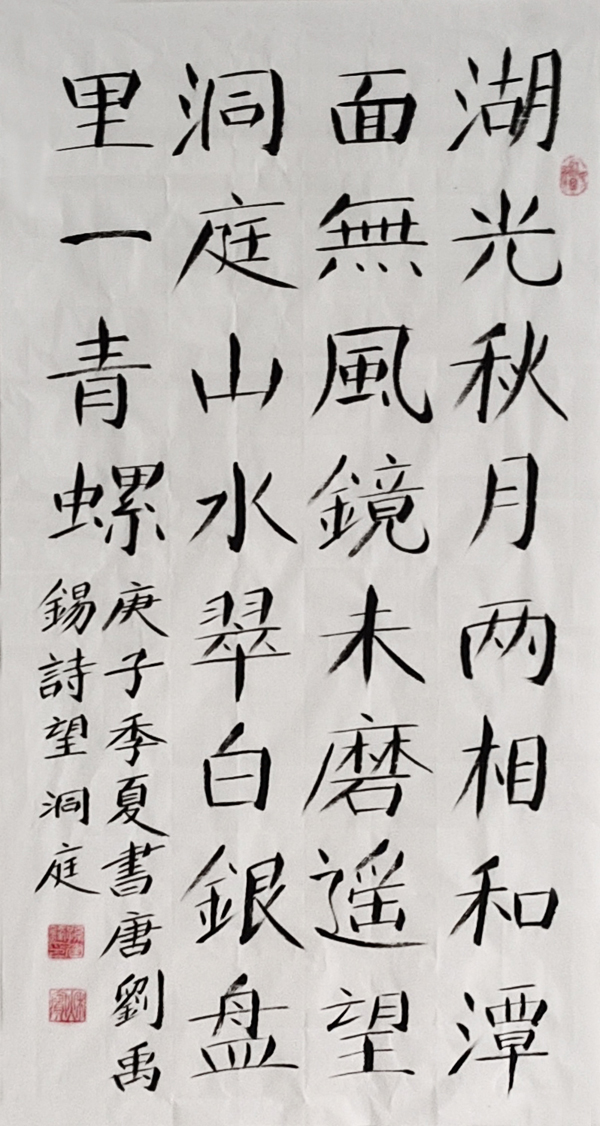 湖光秋月两相和潭
面無風鏡未磨遥望
洞庭山水翠白銀盘
里一青螺
庚子季夏書唐劉禹
錫詩望洞庭